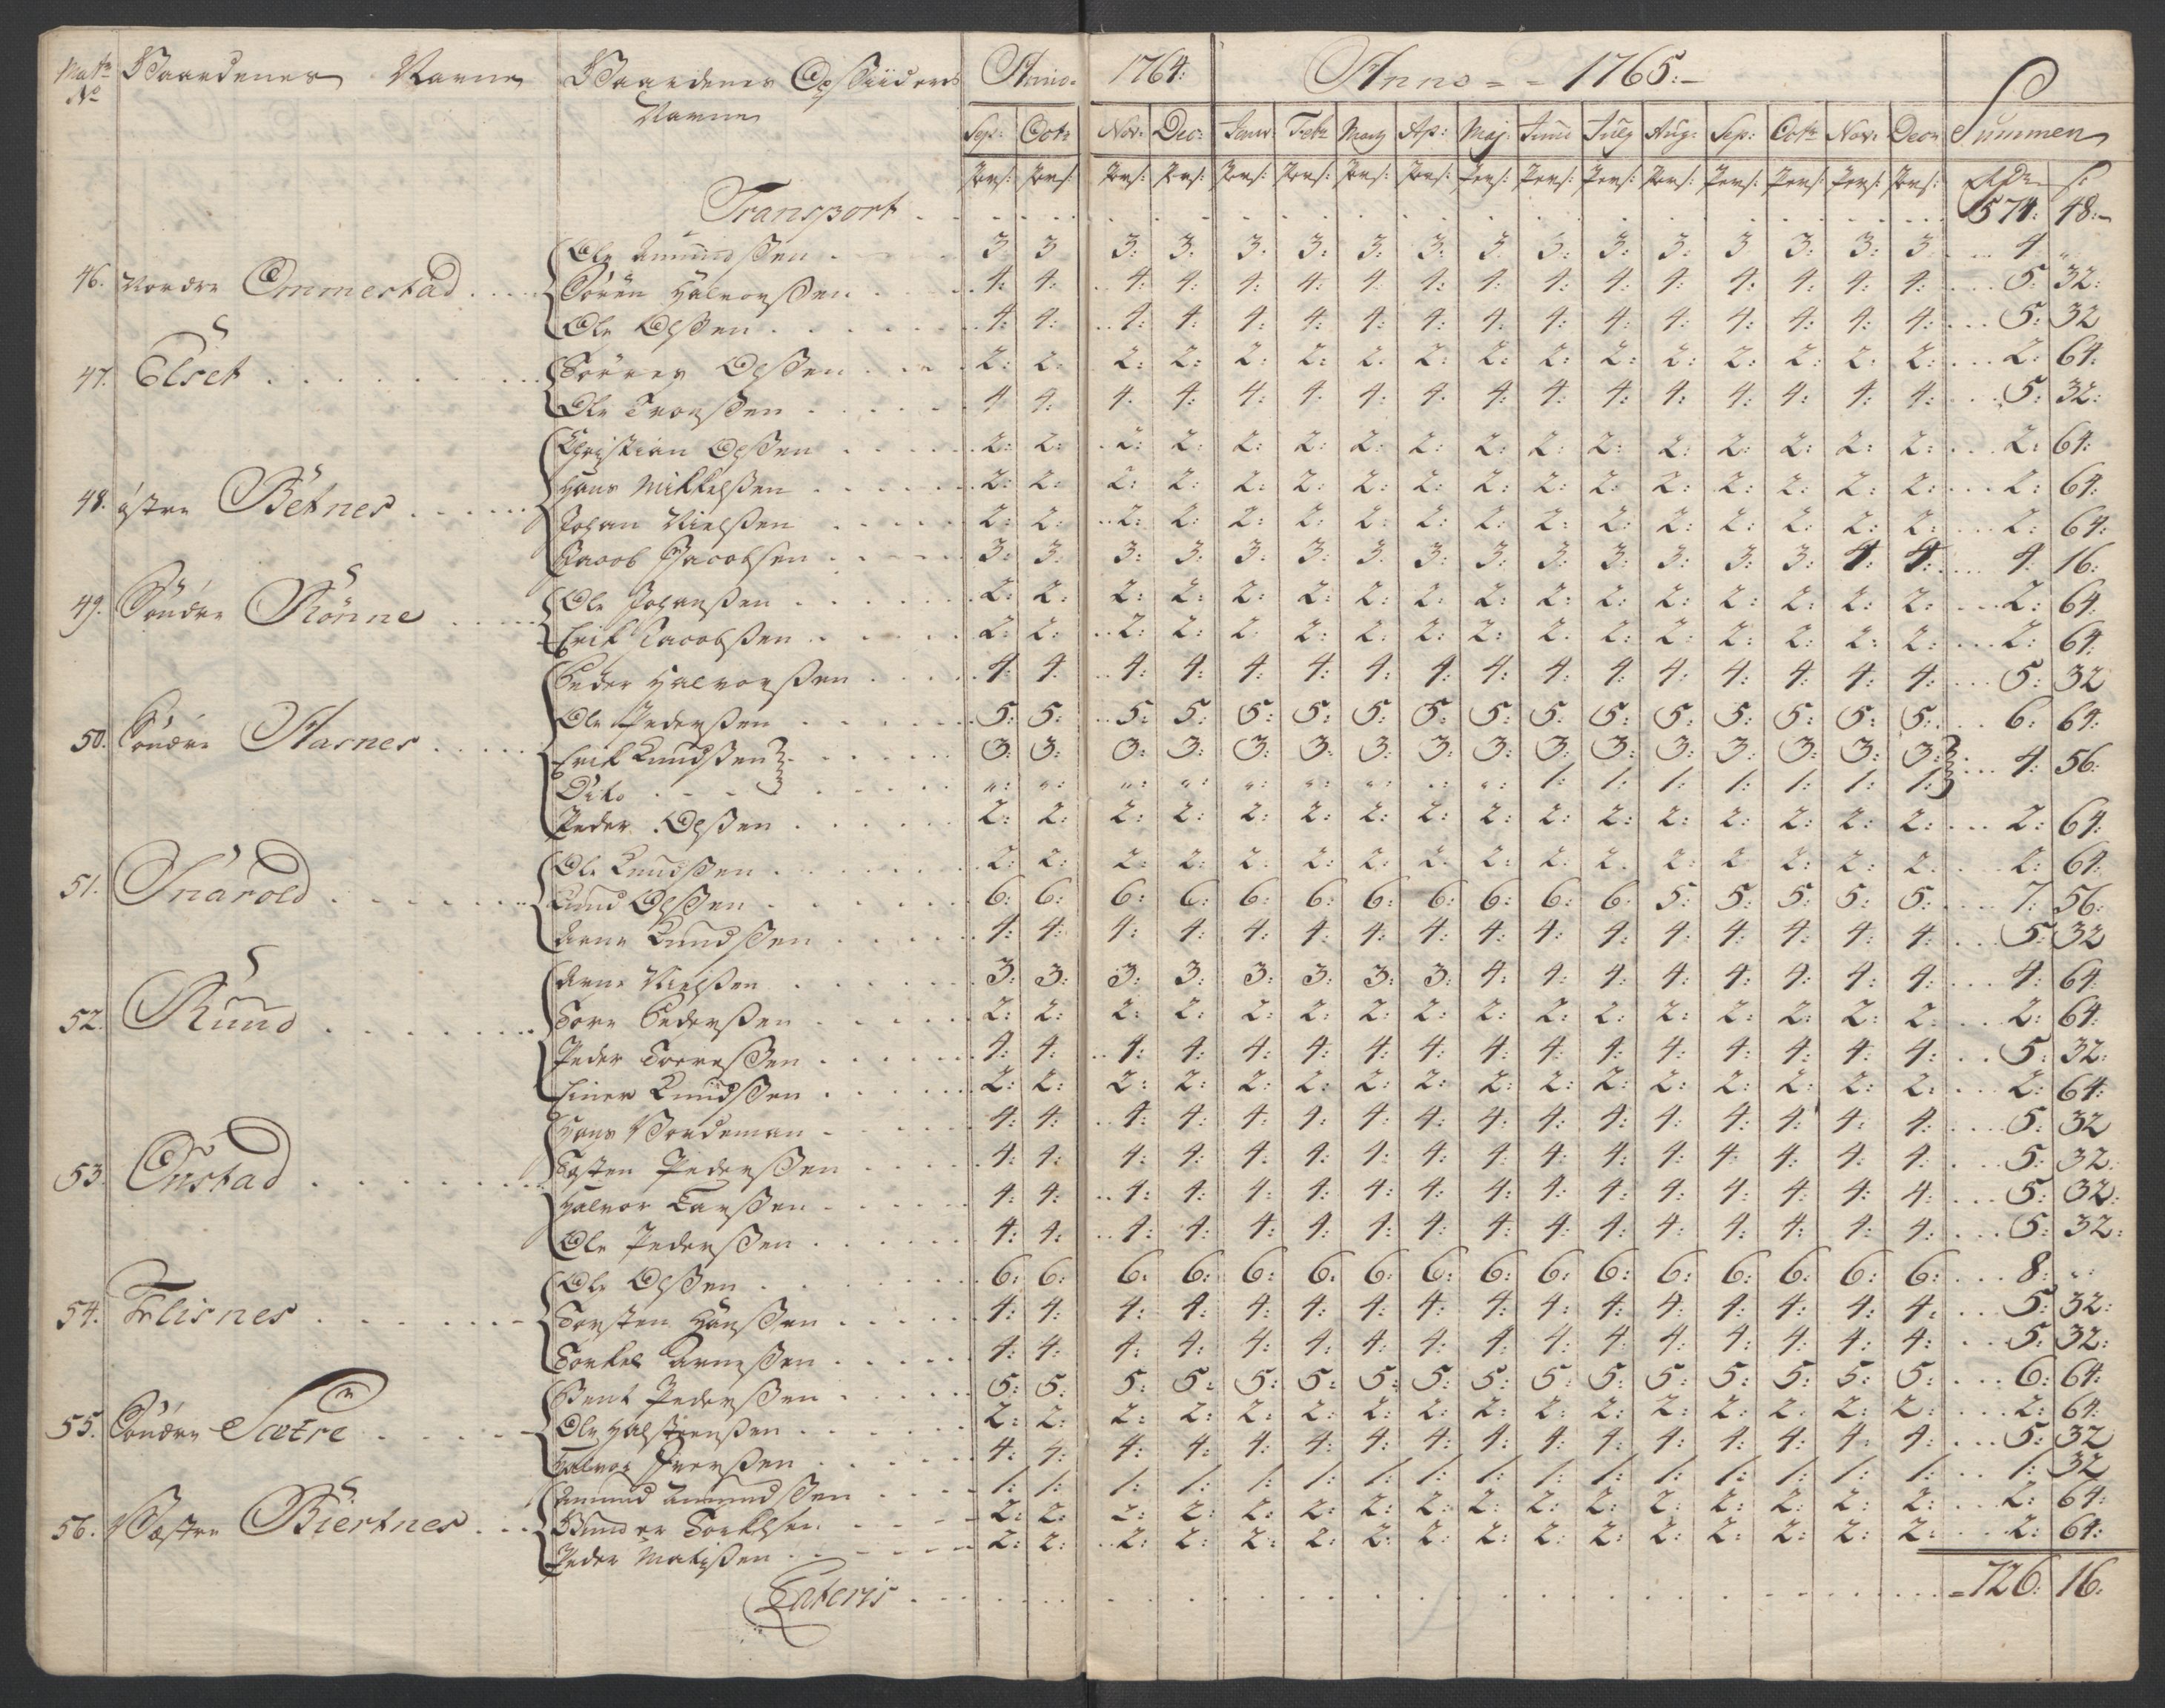 Matr No Gaardenes Navne Gaardenes Opsiideres Navne Anno 1764: Anno - - 1765:- Summen
Sep: Octr Nov: Decr Janv: Febr Marty Ap: Maj: Junii July Aug: Sep: Octr Nov: Decr
Pers: Pers: Pers: Pers: Pers: Pers: Pers: Pers: Pers: Pers: Pers: Pers: Pers: Pers: Pers: Pers: Rdr s:
Transport 571: 48:-
46. Nordre Ommestad
Ole Amundssen 3 3 3: 3. 3: 3: 3: 3: 3 3: 3: 3: 3 3: 3: 3 4 "
Sören Halvorssen 4: 4: 4: 4: 4: 4: 4: 4: 4: 4: 4: 4: 4: 4: 4: 4: 5: 32:
Ole Olssen 4: 4: 4: 4: 4: 4: 4: 4: 4: 4: 4: 4: 4: 4: 4: 4: 5: 32
47. Elset
Sörren Olssen 2: 2: 2: 2: 2: 2: 2: 2: 2: 2: 2: 2: 2: 2: 2: 2: 2: 64:
Ole Tronssen 4 4: 4. 4: 4: 4: 4: 4: 4: 4: 4: 4: 4: 4: 4: 4: 5: 32:
48. östre Betnes
Christian Olssen 2: 2: 2: 2: 2: 2: 2: 2: 2: 2: 2: 2: 2: 2: 2: 2: 2: 64:
Hans Mikkelssen 2: 2: 2: 2: 2: 2: 2: 2: 2: 2: 2: 2: 2: 2: 2: 2: 2: 64:
Johan Nielssen 2: 2: 2: 2: 2: 2: 2: 2: 2: 2: 2: 2: 2: 2: 2: 2: 2: 64:
Jacob Jacobsen 3: 3: 3: 3: 3: 3: 3: 3: 3: 3: 3: 3: 3: 3: 4: 4: 4: 16:
49. Söndre Rönne
Ole Johanssen 2: 2: 2: 2: 2: 2: 2: 2: 2: 2: 2: 2: 2: 2: 2: 2: 2: 64
Erik Jacobssen 2: 2: 2: 2: 2: 2: 2: 2: 2: 2: 2: 2: 2: 2: 2: 2: 2: 64:
50. Söndre Starnes
Peder Halvorssen 4: 4: 4: 4: 4: 4: 4: 4: 4: 4: 4: 4: 4: 4: 4: 4: 5: 32
Ole Pederssen 5: 5: 5: 5: 5: 5: 5: 5: 5: 5: 5: 5: 5: 5: 5: 5: 6: 64:
Erik Knudssen 3: 3: 3: 3: 3: 3: 3: 3: 3: 3: 3: 3: 3: 3: 3: 3: 4: 56:
Dito ": ": ": ": ": ": ": ": ": 1: 1: 1: 1: 1: 1: 1:
Peder Olssen 2: 2: 2: 2: 2: 2: 2: 2: 2: 2: 2: 2: 2: 2: 2: 2: 2: 64:
51. Snarold
Ole Knudssen 2: 2: 2: 2: 2: 2: 2: 2. 2: 2: 2. 2: 2 2: 2: 2 2: 64:
Knud Olssen 6: 6: 6: 6: 6: 6: 6: 6: 6: 6: 6: 5: 5: 5: 5: 5: 7: 56:
Arne Knudssen 4: 4: 4: 4: 4: 4: 4: 4: 4: 4: 4: 4: 4: 4: 4: 4: 5: 32
52. Rund
Arne Nielssen 3: 3: 3: 3: 3: 3: 3: 3: 4: 4: 4: 4: 4: 4: 4: 4: 4: 64
Tore Pederssen 2: 2: 2: 2: 2: 2: 2: 2: 2: 2: 2: 2: 2: 2: 2: 2: 2: 64:
Peder Torressen 4: 4: 4: 4: 4: 4: 4: 4: 4: 4: 4: 4: 4: 4: 4: 4: 5: 32:
Einer Knudssen 2: 2: 2: 2: 2: 2: 2: 2: 2: 2: 2: 2: 2: 2: 2: 2: 2: 64:
53. Onstad
Hans Nordeman 4: 4: 4: 4: 4: 4: 4: 4: 4: 4: 4: 4: 4: 4: 4: 4: 5: 32
Tosten Pederssen 4: 4: 4: 4: 4: 4: 4: 4: 4: 4: 4: 4: 4 4: 4: 4: 5: 32:
Halvor Larssen 4: 4: 4: 4: 4: 4: 4: 4: 4: 4: 4: 4: 4: 4: 4: 4: 5: 32:
Ole Pederssen 4: 4: 4: 4: 4: 4: 4: 4: 4: 4: 4: 4: 4: 4: 4: 4: 5: 32:
54. Flisnes
Ole Olssen 6: 6: 6: 6: 6: 6: 6: 6: 6: 6: 6: 6: 6: 6: 6: 6: 8: ":
Torsten Hanssen 4: 4: 4: 4: 4: 4: 4: 4: 4: 4: 4: 4: 4: 4: 4: 4: 5: 32:
Torkel Arnessen 4: 4: 4: 4: 4: 4: 4: 4: 4: 4: 4: 4: 4: 4: 4: 4: 5: 32:
55. Söndre Sætre
Bent Pederssen 5: 5: 5: 5: 5: 5: 5: 5: 5: 5: 5: 5: 5: 5: 5: 5: 6: 64:
Ole Halsteenssen 2: 2: 2: 2: 2: 2: 2: 2: 2: 2: 2: 2: 2: 2: 2: 2: 2: 64:
Halvor Iverssen 4: 4: 4: 4: 4: 4: 4: 4: 4: 4: 4: 4: 4: 4: 4: 4: 5: 32
56. Wæstre Biertnes
Amund Amundssen 1: 1: 1: 1: 1: 1: 1: 1: 1: 1: 1: 1: 1: 1: 1: 1: 1: 32
Gunder Torkelsen 2: 2: 2: 2: 2: 2: 2: 2: 2: 2: 2: 2: 2: 2: 2: 2: 2: 64:
Peder Matissen 2: 2: 2: 2: 2: 2: 2: 2: 2: 2: 2: 2: 2: 2: 2: 2: 2: 64:
Lateris 726: 16: